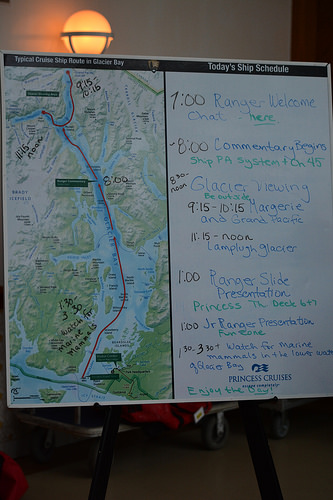 Typical Cruise Ship Route in Glacier Bay
Today's Ship Schedule
9:15 -
10:15
11:15
noon
8:00
1:30 -
3:30
watch for
marine
mammals
BRADY
ICEFIELD
7:00 Ranger Welcome
Chat here
~8:00 Commentary Begins
Ship PA System & Ch 45
8:30 -
noon
Glacier Viewing
Be outside
9:15 - 10:15 Margerie
and Grand Pacific
11:15 - noon
Lamplugh Glacier
1:00 Ranger Slide
Presentation
Princess Th. Deck 6+7
1:00 Jr Ranger Presentation
Fun Zone
1:30 - 3:30+ Watch for marine
mammals in the lower
of Glacier Bay
PRINCESS CRUISES
Enjoy the day!